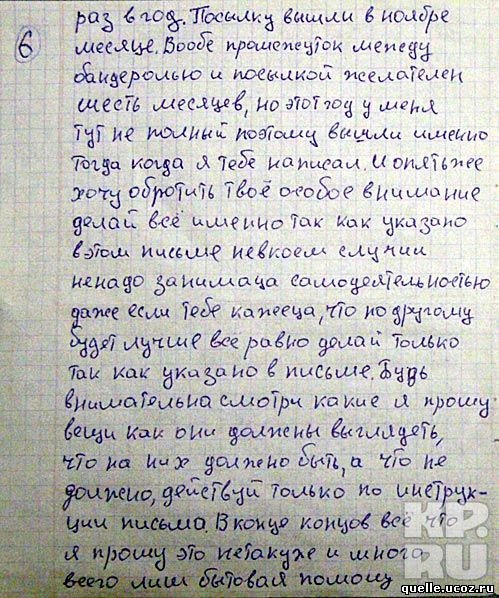 6
раз в год. Посылку вышли в ноябре
месяце. Вообе промежуток между
бандеролью и посылкой желателен
шесть месяцев, но этот год у меня
тут не полный поэтому вышли именно
тогда когда я тебе написал. И опять же
хочу обротить твоё особое внимание
делай всё именно так как указано
в этом письме невкоем случии
ненадо занимаца самодеятельностью
даже если тебе кажееца, что по другому
будет лучше всё равно делай только
так как указано в письме. Будь
внимательна смотри какие я прошу
вещи как они должны выглядеть,
что на них должно быть, а что не
должно, действуй только по инструк-
ции письма. В конце концов всё что
я прошу это нетакуже и много,
всего лиш бытовая помощ
KP.
RU
quelle.ucoz.ru